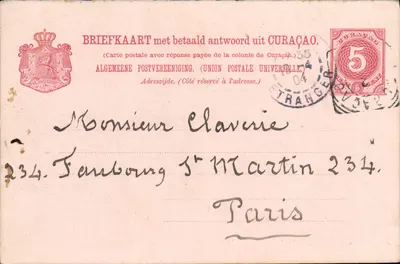 BRIEFKAART met betaald antwoord uit CURAÇAO.
(Carte postale avec réponse payée de la colonie de Curaçao.)
ALGEMEENE POSTVEREENIGING. (UNION POSTALE UNIVERSELLE.)
Adreszijde. (Côté réservé à l'adresse.)
CURAÇAO
5
ETRANGER
Monsieur Claverie
234. Faubourg St Martin 234.
Paris